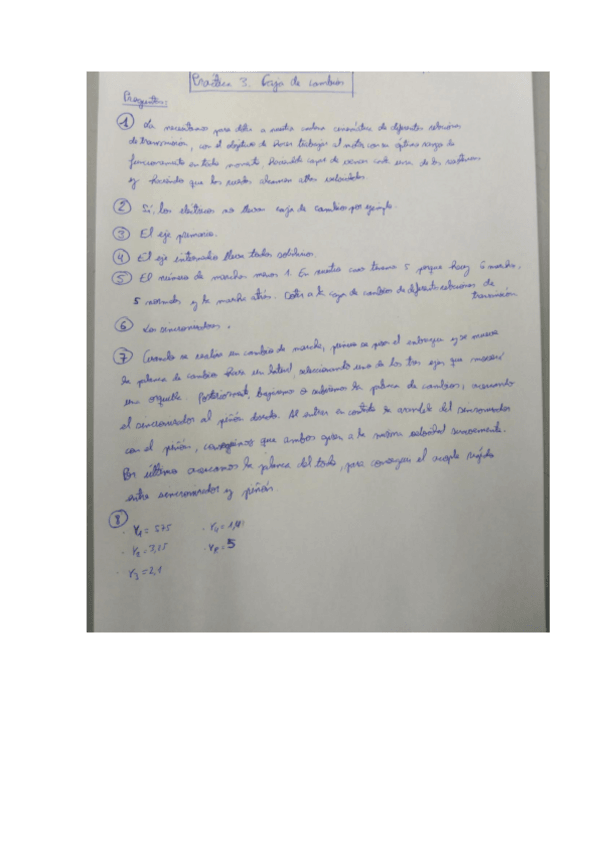 Práctica 3. Caja de cambios
Preguntas:
1 La necesitamos para dotar a nuestra cadena cinemática de diferentes relaciones
de transmisión, con el objetivo de hacer trabajar el motor con su óptimo rango de
funcionamiento en todo momento. Haciendole capaz de vencer cada una de las
y haciendo que las ruedas alcancen altas velocidades.
2 Sí, los eléctricos no llevan caja de cambios por ejemplo.
3 El eje primario.
4 El eje intermedio lleva todos solidarios.
5 El número de marchas menos 1. En nuestro caso tenemos 5 porque hay 6 marchas,
5 normales y la marcha atrás. Dotar a la caja de cambios de diferentes relaciones de
transmisión
6 Los sincronizadores.
7 Cuando se realiza un cambio de marcha, primero se pisa el embrague y se mueve
la palanca de cambios hacia un lateral, seleccionando uno de los tres ejes que moverá
una orquilla. Posteriormente, bajaremos o subiremos la palanca de cambios, acercando
el sincronizador al piñón deseado. Al entrar en contacto la del sincronizador
con el piñón, conseguimos que ambos giren a la misma velocidad suavemente.
Por último acercamos la palanca del todo, para conseguir el acople rígido
entre sincronizador y piñón.
8
· r1 = 5,75 · r4 = 1,41
· r2 = 3,25 · rR = 5
· r3 = 2,1